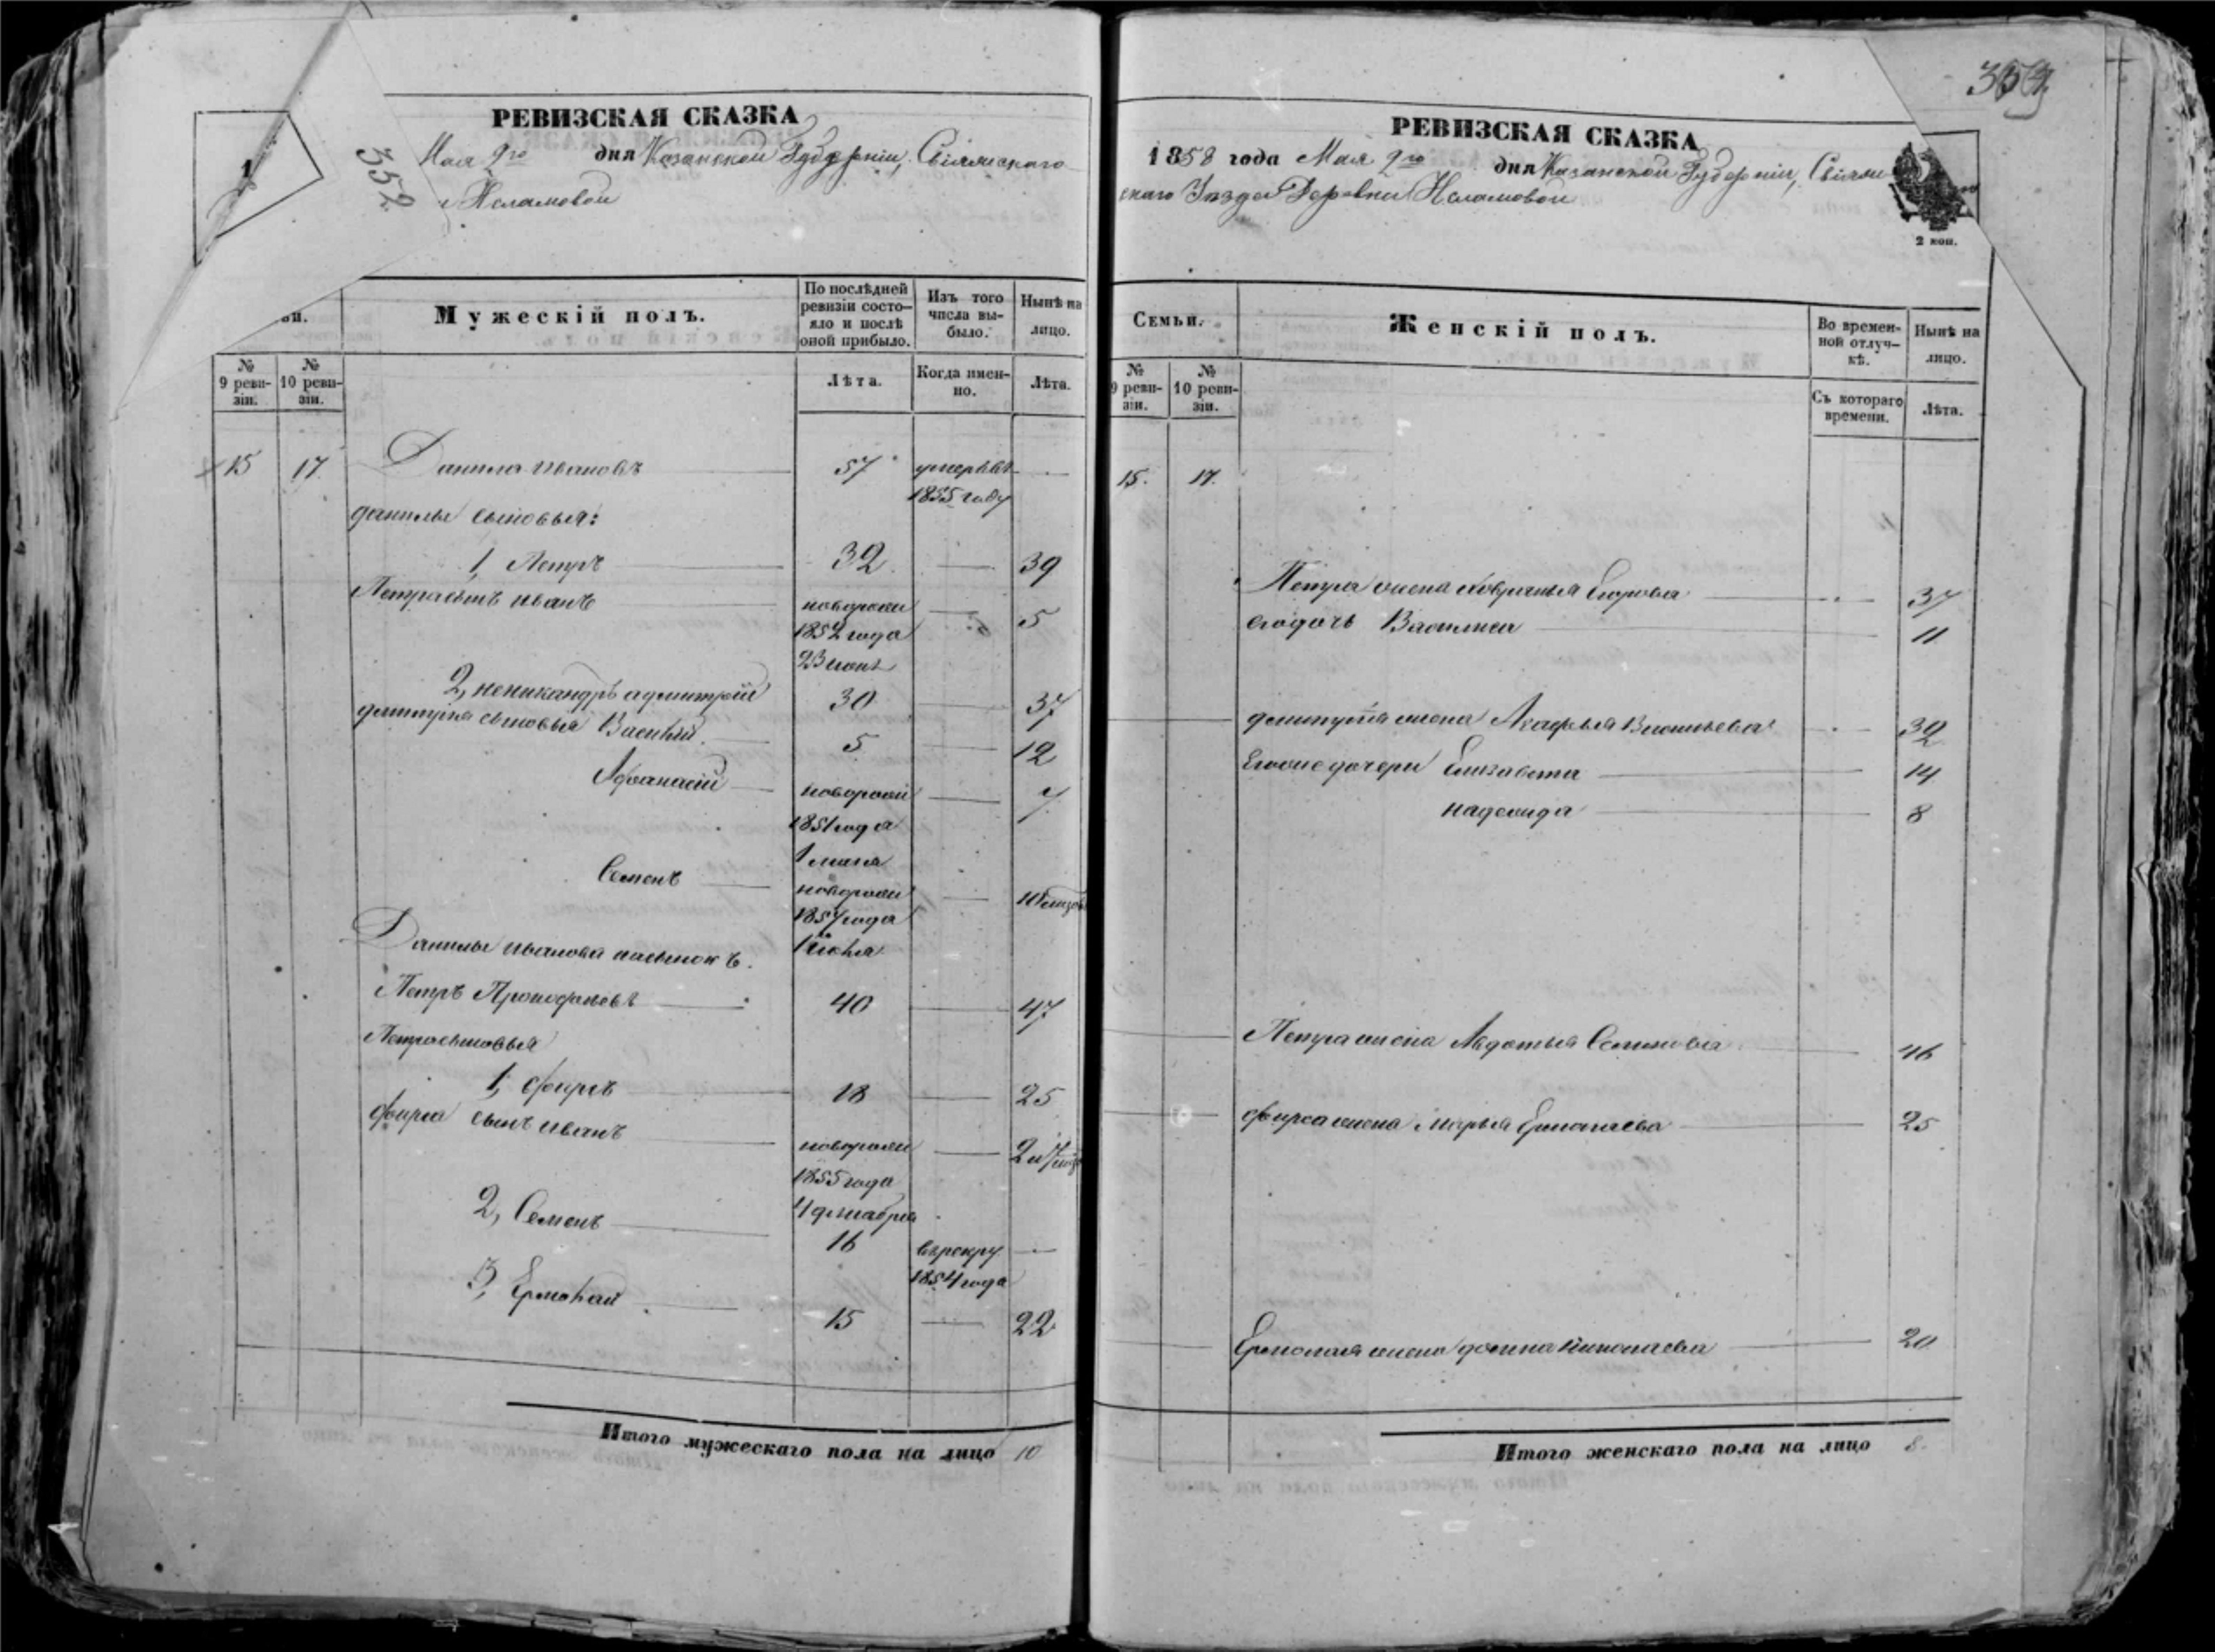 РЕВИЗСКАЯ СКАЗКА
1
352
Мая 2го дня Казанской Губерніи, Свіяжскаго
Исламовой
ьи.
Мужескій полъ.
По послѣдней ревизіи состояло и послѣ оной прибыло.
Изъ того числа выбыло.
Нынѣ на лицо.
№ 9 ревизіи.
№ 10 ревизіи.
Лѣта.
Когда именно.
Лѣта.
15 17 Данила Ивановъ 57 умеръ въ
1855 году
данилы сыновья:
1, Петръ 32 39
Петра сынъ иванъ новорож 5
1852 года
23 июня
2, неникандръ адмитрій 30 37
дмитрія сыновья Василій 5 12
Афанасій новорож 7
1851 года
1 мая
Семенъ новорож
1857 года
1 июня
Данилы иванова пасынокъ
Петръ Прокофьевъ 40 47
Петра сыновья
1, фирсъ 18 25
фирса сынъ иванъ новорож
1855 года
4 декабря
2, Семенъ 16 въ рекру
1854 года
3, Ермолай 15 22
Итого мужескаго пола на лицо 10
РЕВИЗСКАЯ СКАЗКА
1858 года Мая 2го дня Казанской Губерніи, Свіяж
скаго Уѣзда Деревни Исламовой
2 коп.
Семьи.
Женскій полъ.
Во временной отлучкѣ.
Нынѣ на лицо.
№ 9 ревизіи.
№ 10 ревизіи.
Съ котораго времени.
Лѣта.
15. 17.
Петра жена Егорова 37
его дочь Василиса 11
дмитрія жена Агафья Васильева 32
Егоже дочери Елизавета 14
надежда 8
Петра жена Авдотья Семенова 46
фирса жена Марья Ермолаева 25
Ермолая жена домна николаева 20
Итого женскаго пола на лицо 8.